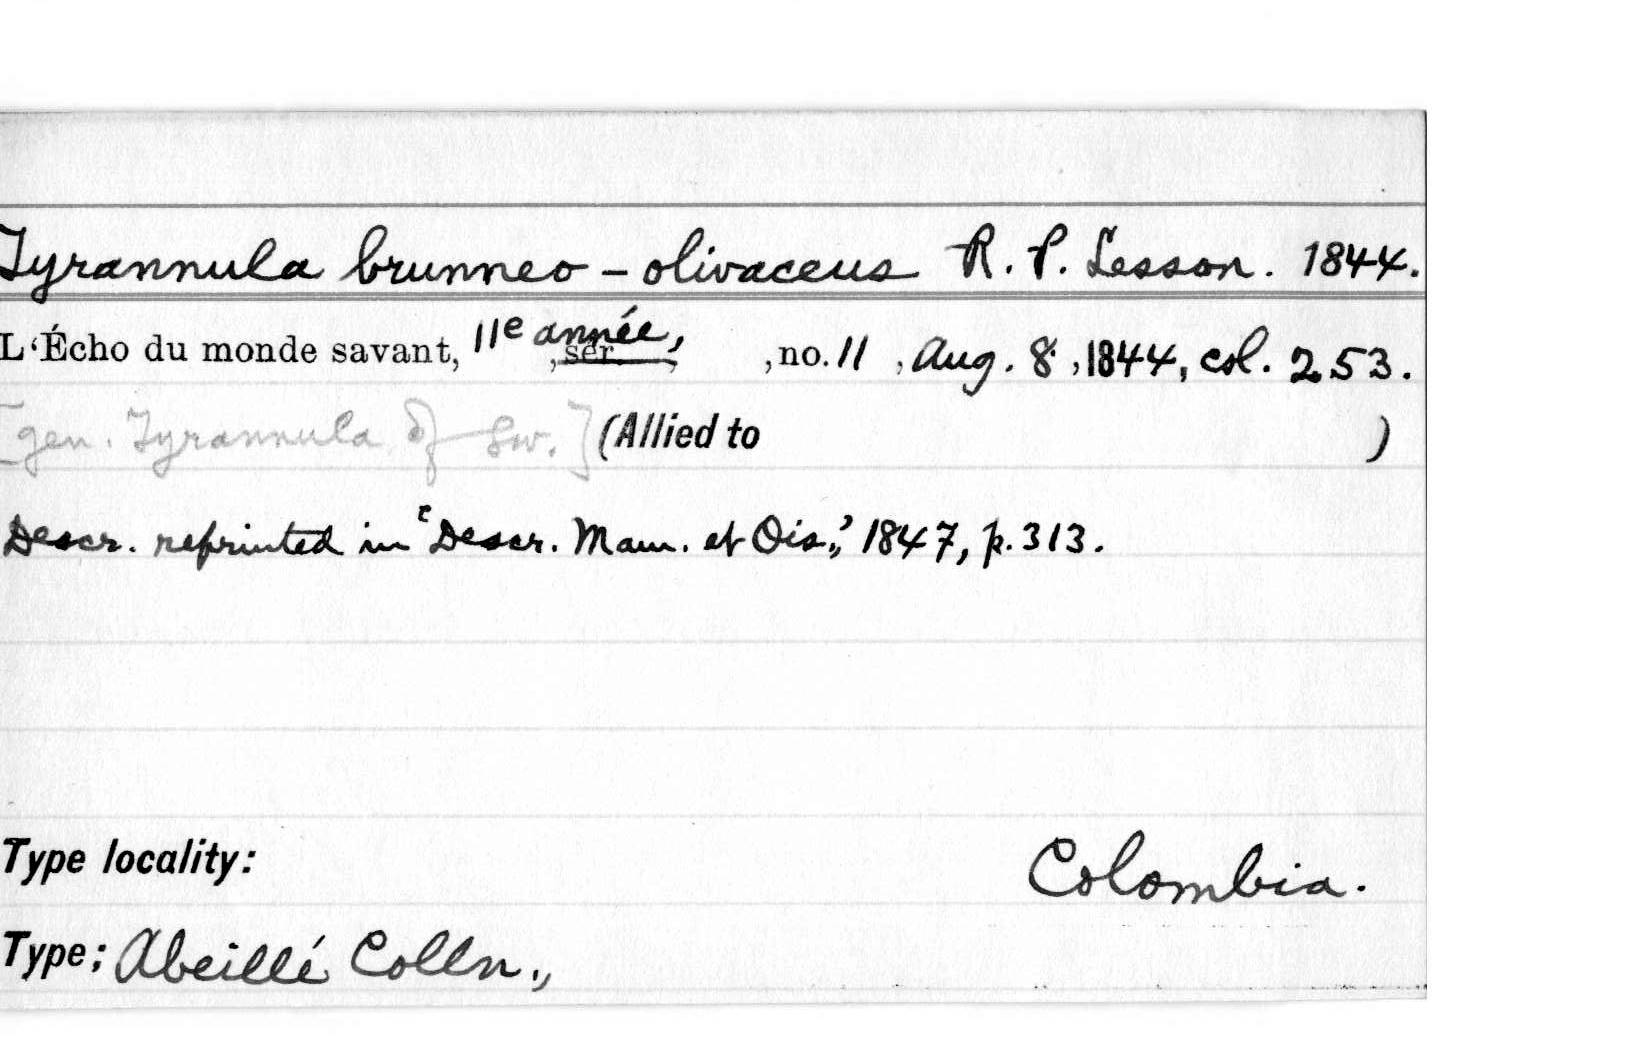 Tyrannula brunneo-olivaceus R. P. Lesson. 1844.
L'Écho du monde savant, 11e année, , sér. , , no. 11 , Aug. 8 , 1844, col. 253.
[gen. Tyrannula of Sw.] (Allied to )
Descr. reprinted in 'Descr. Mam. et Ois.,' 1847, p. 313.
Type locality: Colombia.
Type; Abeillé Colln.,